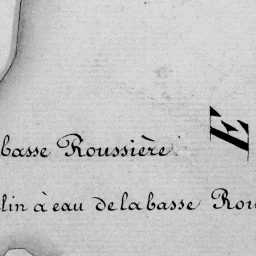 E
basse Roussière
lin à eau de la basse Rou